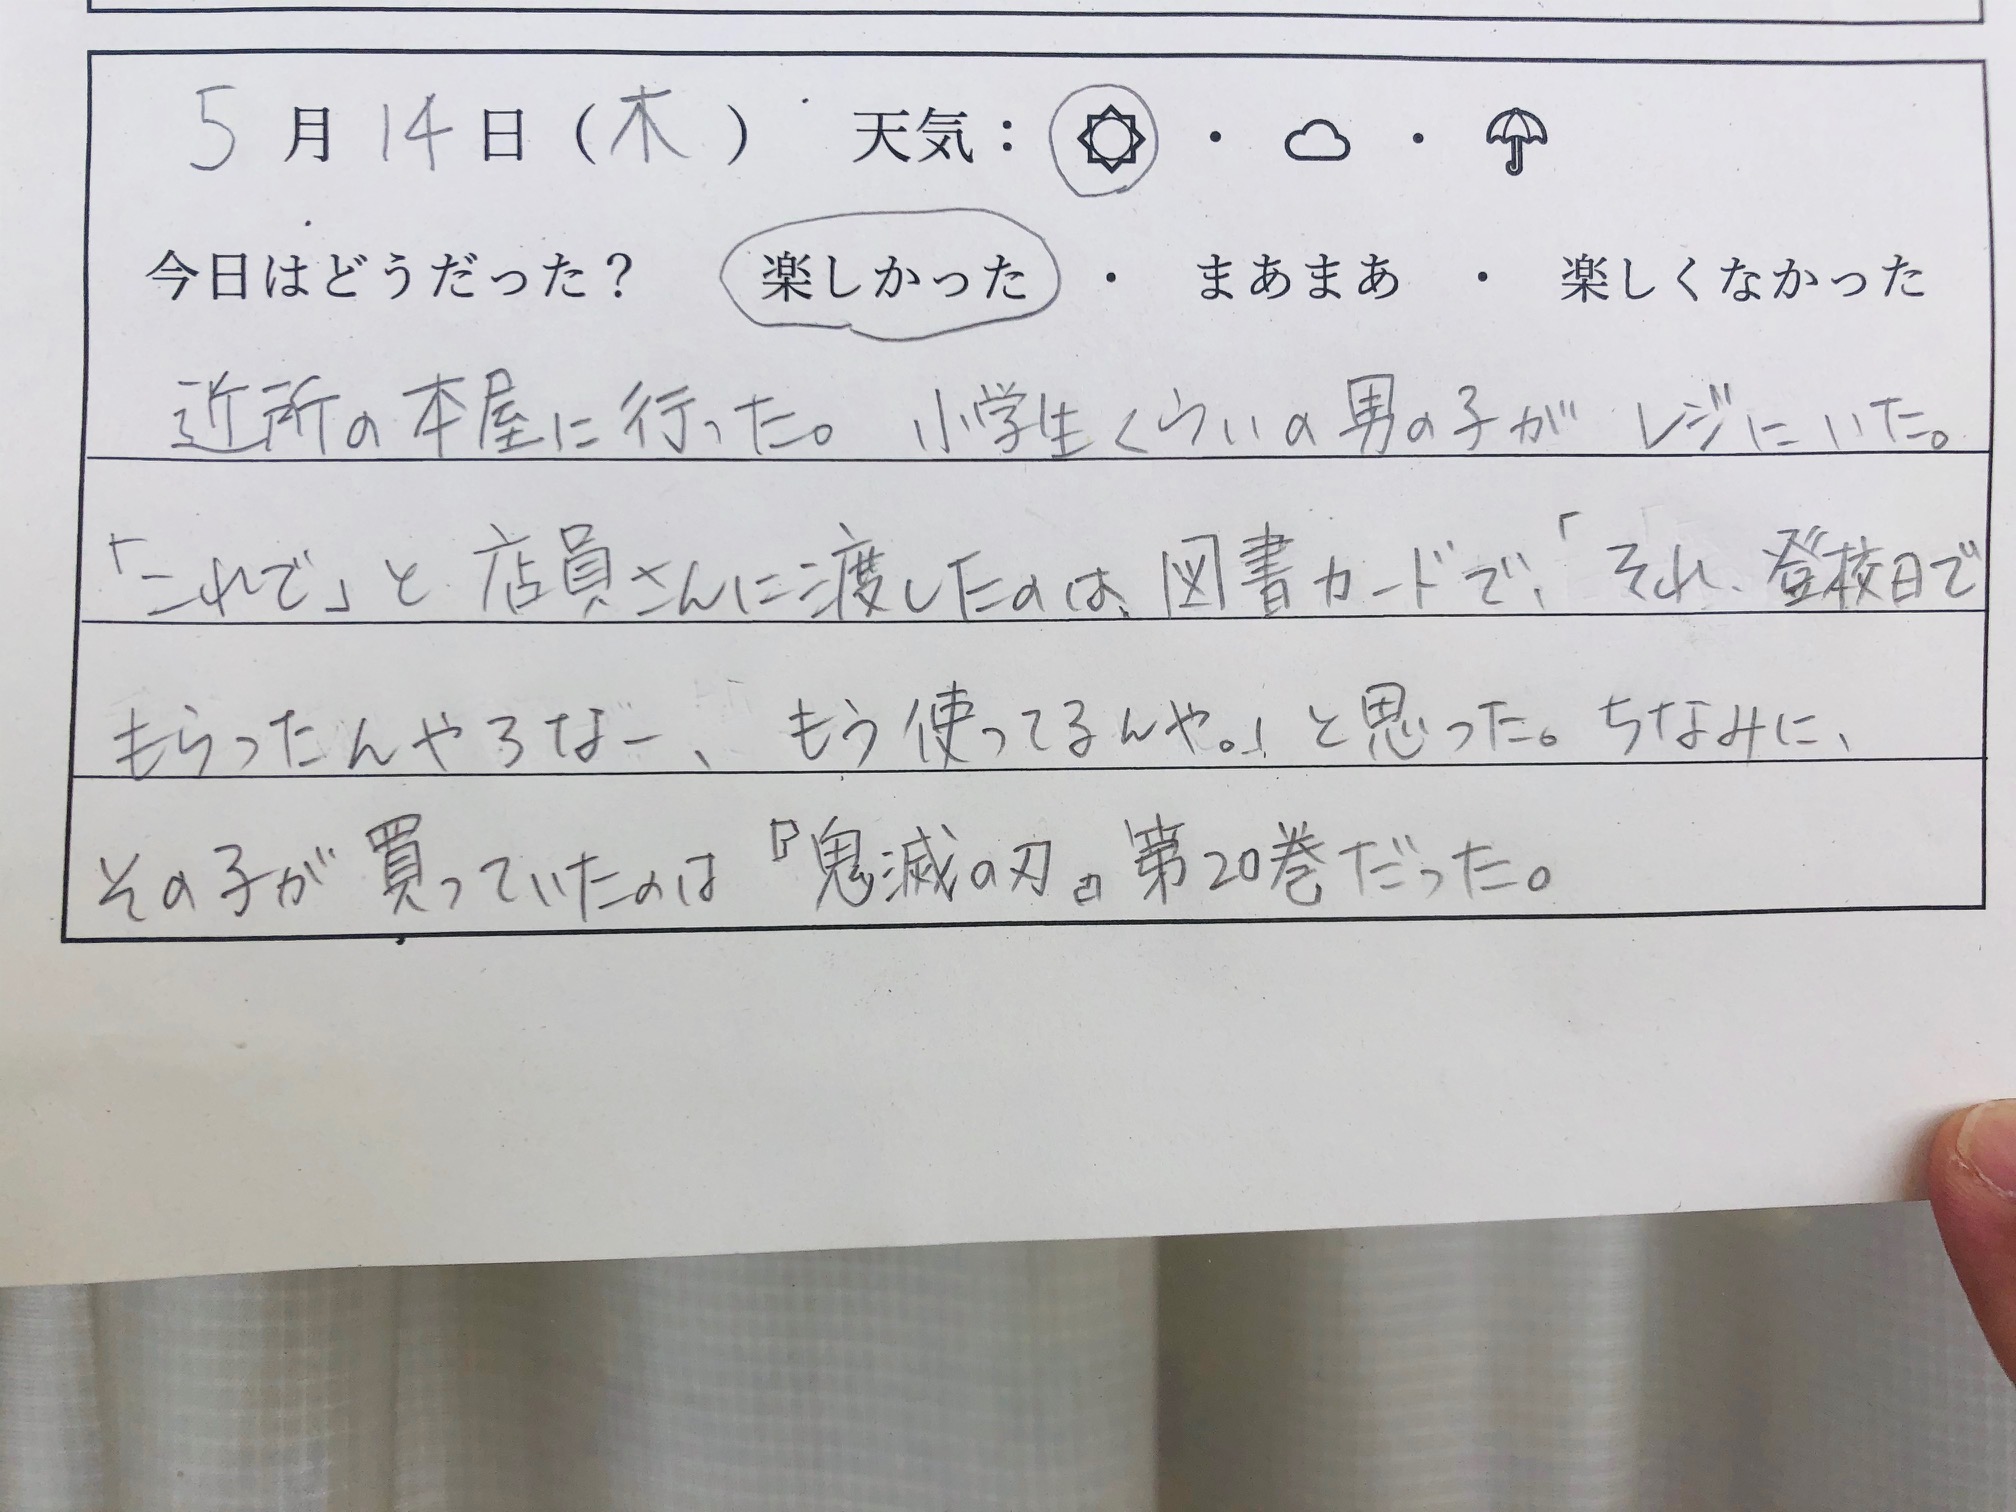 5月14日（木） 天気：☼・☁・☂
今日はどうだった？ 楽しかった ・ まあまあ ・ 楽しくなかった
近所の本屋に行った。小学生くらいの男の子がレジにいた。
「これで」と店員さんに渡したのは、図書カードで、「それ、登校日で
もらったんやろなー、もう使ってるんや。」と思った。ちなみに、
その子が買っていたのは『鬼滅の刃』第20巻だった。